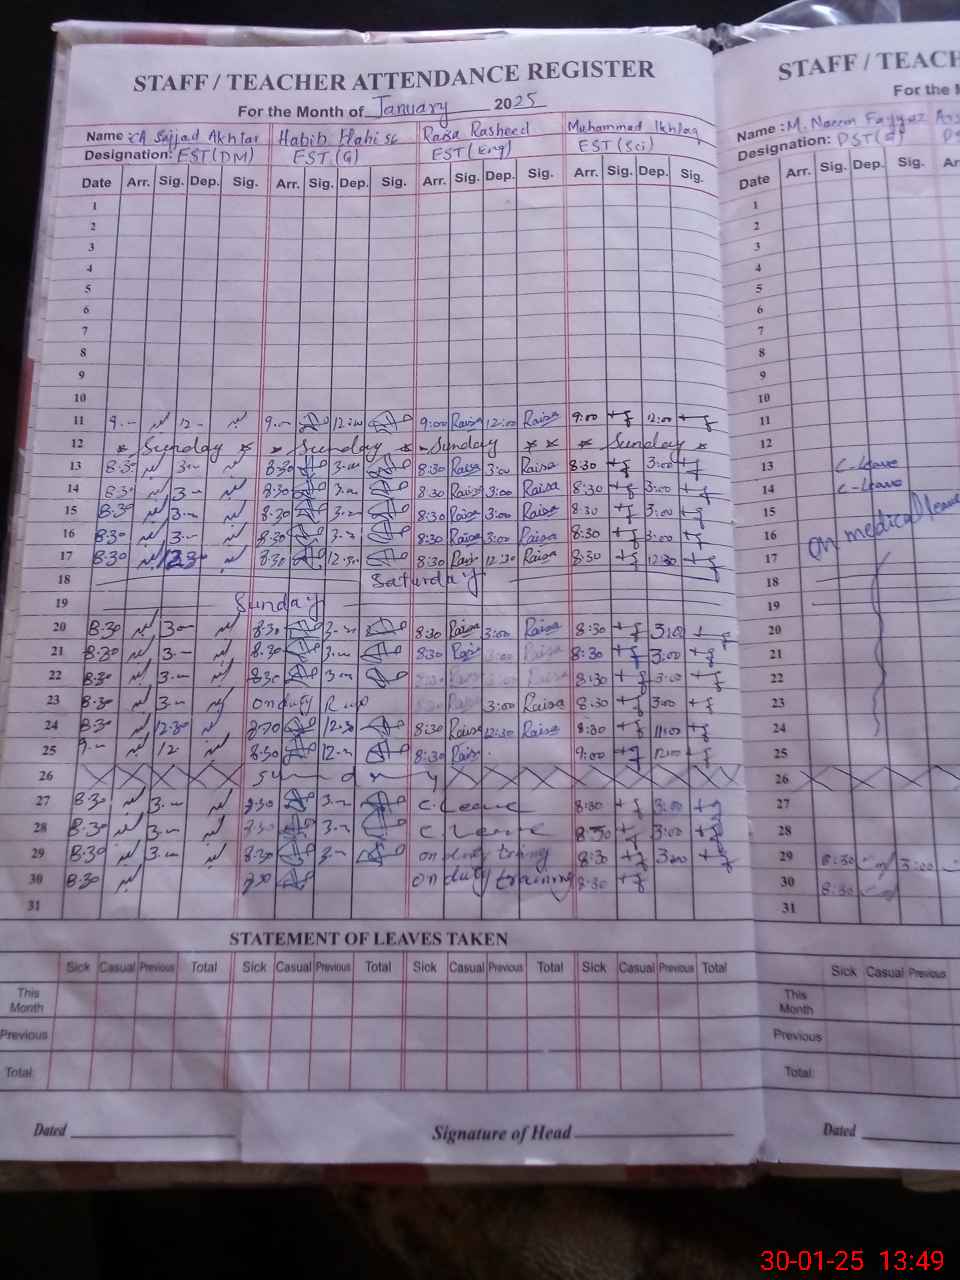 STAFF / TEACHER ATTENDANCE REGISTER
For the Month of January 2025
Name : Sajjad Akhtar Habib Elahi Raisa Rasheed Muhammad Ikhlaq
Designation: EST(DM) EST(G) EST(Eng) EST(Sci)
Date Arr. Sig. Dep. Sig. Arr. Sig. Dep. Sig. Arr. Sig. Dep. Sig. Arr. Sig. Dep. Sig.
1
2
3
4
5
6
7
8
9
10
11 9.— 12— 9.— 12.00 9:00 Raisa 12:00 Raisa 9:00 12:00
12 * Sunday * * Sunday * Sunday * * * Sunday *
13 8:30 3.— 8:30 3.— 8:30 Raisa 3:00 Raisa 8:30 3:00
14 8:30 3— 8:30 3.— 8:30 Raisa 3:00 Raisa 8:30 3:00
15 8:30 3.— 8:30 3.— 8:30 Raisa 3:00 Raisa 8:30 3:00
16 8:30 3.— 8:30 3.— 8:30 Raisa 3:00 Raisa 8:30 3:00
17 8:30 12:30 8:30 12:30 8:30 Raisa 12:30 Raisa 8:30 12:30
18 Saturday
19 Sunday
20 8:30 3— 8:30 3.— 8:30 Raisa 3:00 Raisa 8:30 3:00
21 8:30 3.— 8:30 3.— 8:30 Raisa 3:00 Raisa 8:30 3:00
22 8:30 3.— 8:30 3.— 8:30 Raisa 3:00 Raisa 8:30 3:00
23 8:30 3.— on duty 3:00 Raisa 8:30 3:00
24 8:30 12:30 8:30 12:30 8:30 Raisa 12:30 Raisa 8:30 11:00
25 9.— 12 8:30 12.— 8:30 Raisa 9:00 12:00
26 Sunday
27 8:30 3.— 8:30 3.— C.Leave 8:30 3:00
28 8:30 3.— 8:30 3.— C.Leave 8:30 3:00
29 8:30 3.— 8:30 3— on duty 8:30 3:00
30 8:30 8:30 on duty training 8:30
31
STATEMENT OF LEAVES TAKEN
Sick Casual Previous Total Sick Casual Previous Total Sick Casual Previous Total Sick Casual Previous Total
This Month
Previous
Total
Dated
Signature of Head
STAFF / TEACH
For the M
Name : M. Naeem Fayyaz
Designation: PST
Date Arr. Sig. Dep. Sig.
1
2
3
4
5
6
7
8
9
10
11
12
13 C-Leave
14 C-Leave
15 on medical leave
16
17
18
19
20
21
22
23
24
25
26
27
28
29 8:30 3:00
30 8:30
31
Sick Casual Previous
This Month
Previous
Total:
Dated
30-01-25 13:49